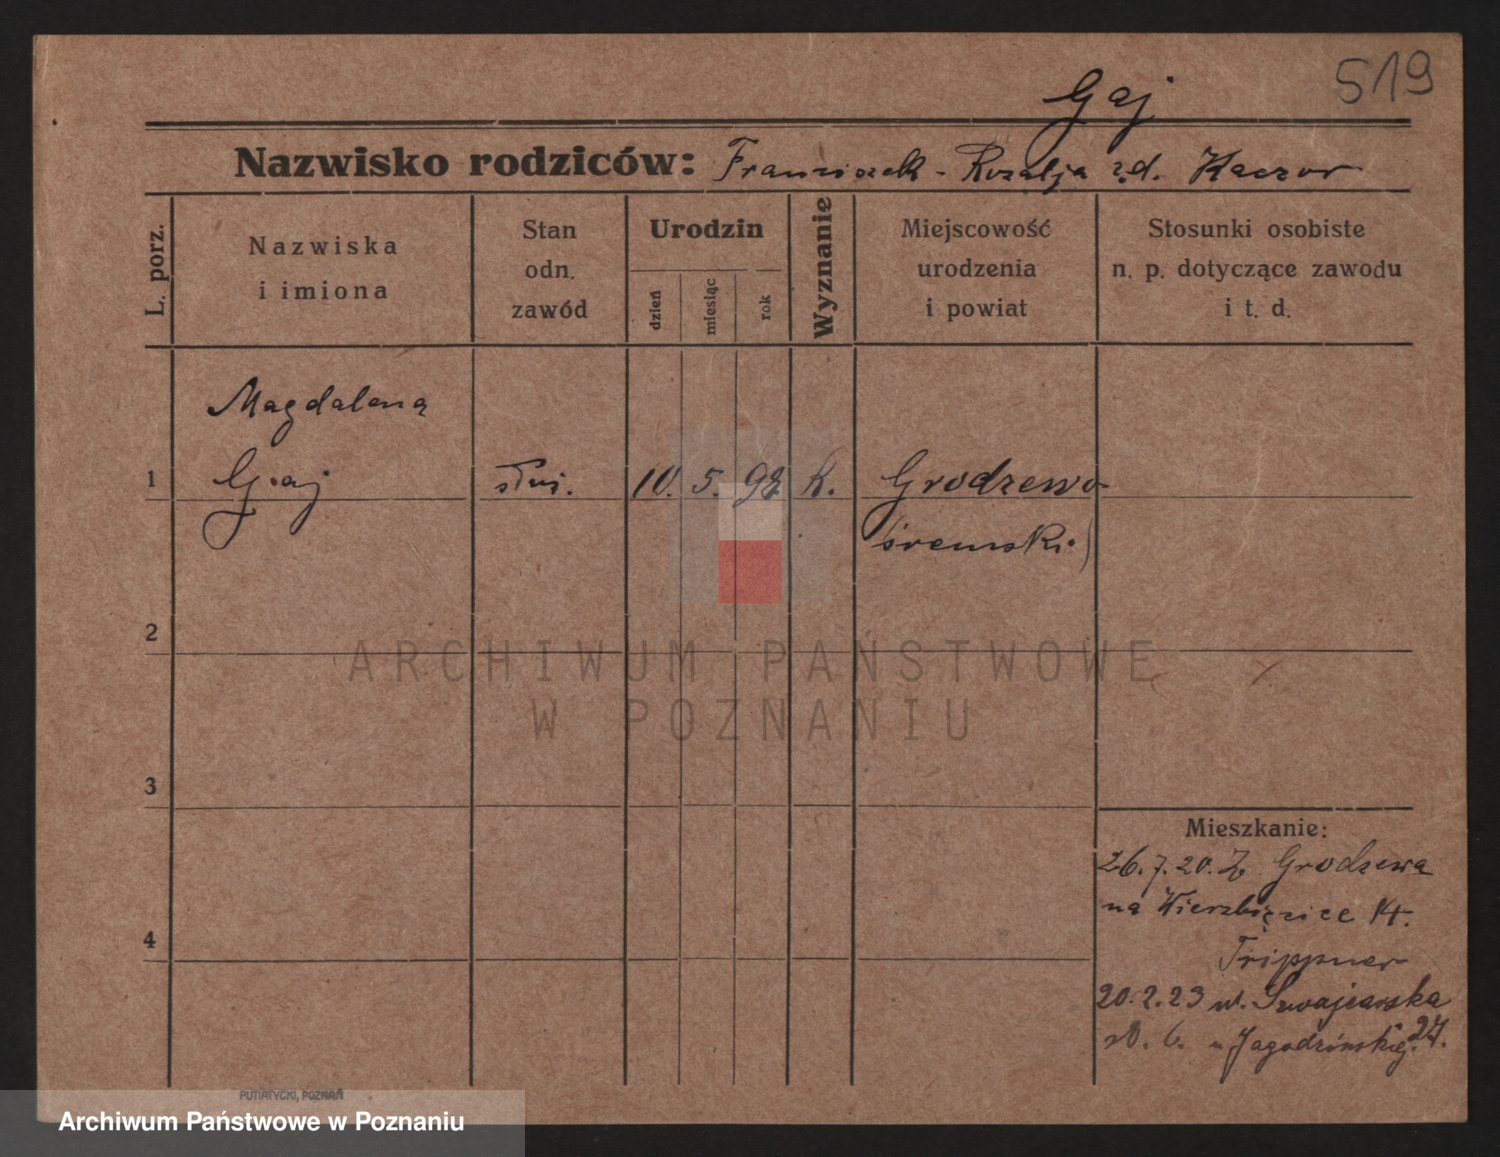 519
Gaj
Nazwisko rodziców: Franciszek - Rozalja z d. Kaczor
L. porz.
Nazwiska
i imiona
Stan
odn.
zawód
Urodzin
dzień
miesiąc
rok
Wyznanie
Miejscowość
urodzenia
i powiat
Stosunki osobiste
n. p. dotyczące zawodu
i t. d.
Magdalena
1 Gaj służ. 10. 5. k. Grodzewo
śremski
2
ARCHIWUM PAŃSTWOWE
W POZNANIU
3
Mieszkanie:
26.7.20. Z Grodzewa
na Wierzbięcice 14.
4
Trippner
20.2.23 ul. Szwajcarska
6. u Jagodzińskiej. 27.
PUTIATYCKI, POZNAŃ
Archiwum Państwowe w Poznaniu